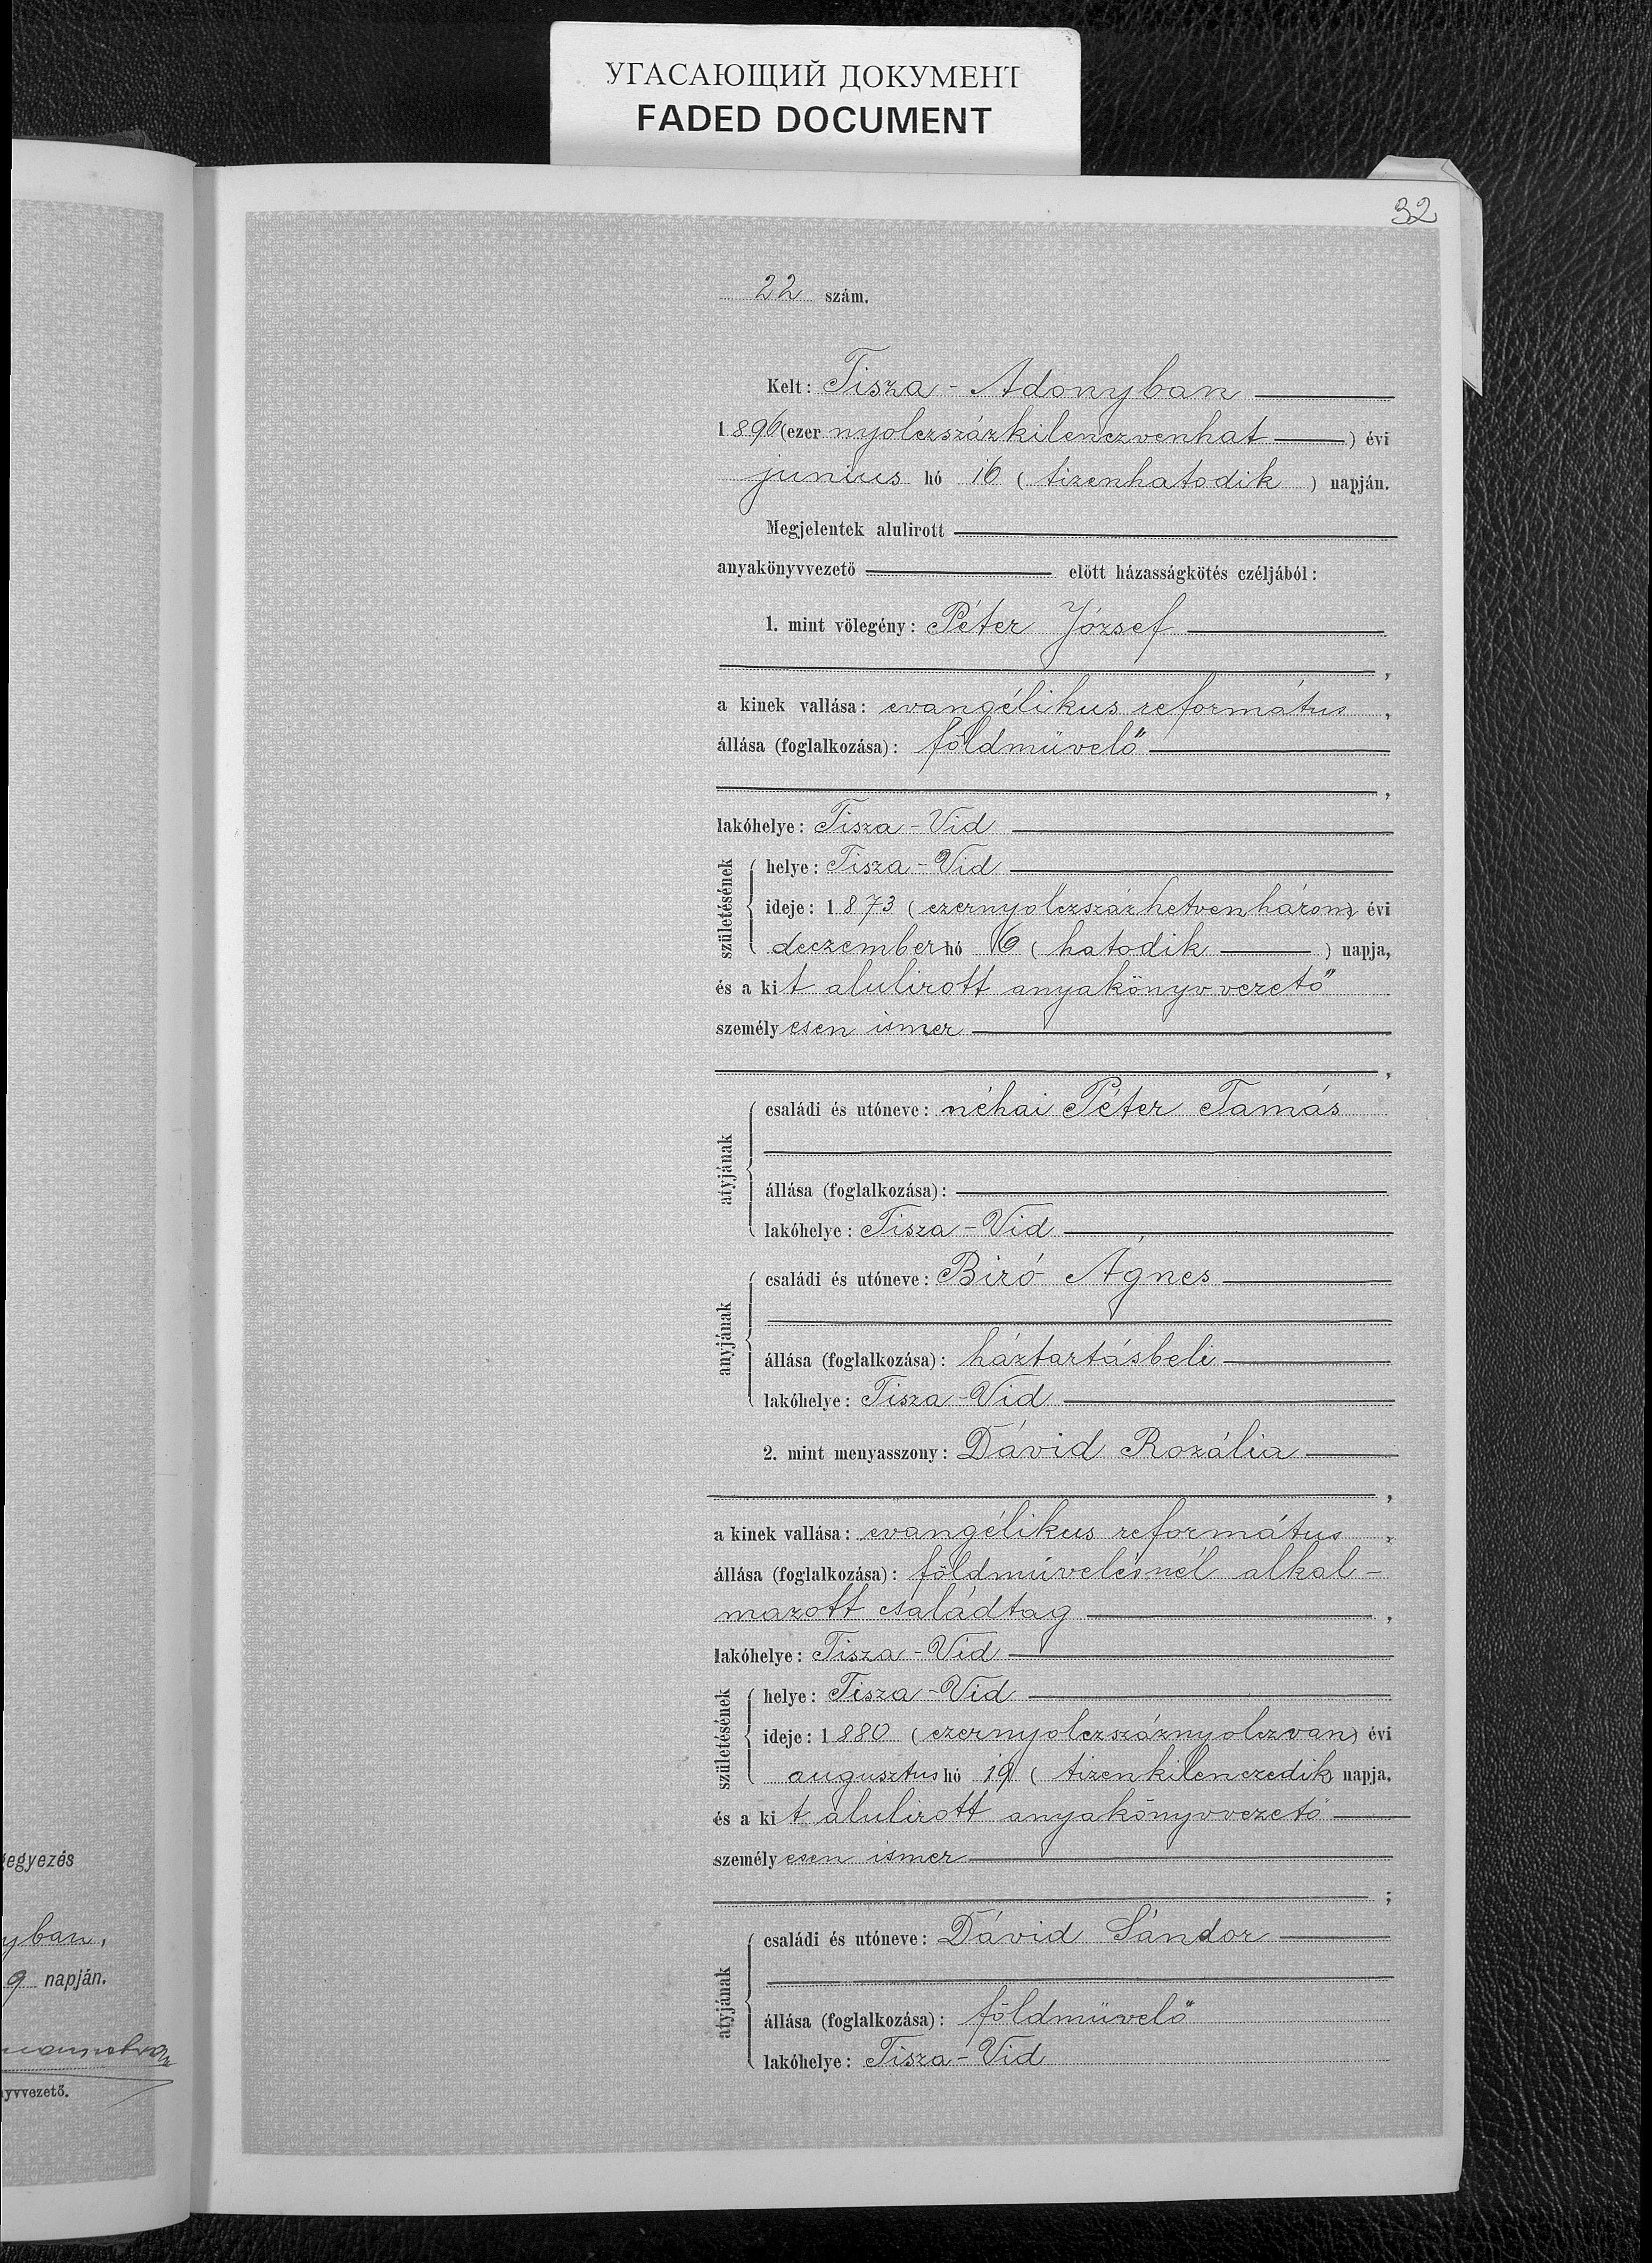 УГАСАЮЩИЙ ДОКУМЕНТ
FADED DOCUMENT
32
22 szám.
Kelt: Tisza-Adonyban
1896 (ezer nyolczszázkilenczvenhat) évi
junius hó 16 (tizenhatodik) napján.
Megjelentek alulirott
anyakönyvvezető előtt házasságkötés czéljából:
1. mint völegény: Péter József
,
a kinek vallása: evangélikus református,
állása (foglalkozása): földmüvelő
,
lakóhelye: Tisza-Vid
születésének
helye: Tisza-Vid
ideje: 1873 (ezernyolczszázhetvenhárom) évi
deczember hó 6 (hatodik) napja,
és a kit alulirott anyakönyvvezető
személyesen ismer
,
atyjának
családi és utóneve: néhai Péter Tamás
állása (foglalkozása):
lakóhelye: Tisza-Vid
anyjának
családi és utóneve: Biró Ágnes
állása (foglalkozása): háztartásbeli
lakóhelye: Tisza-Vid
2. mint menyasszony: Dávid Rozália
,
a kinek vallása: evangélikus református,
állása (foglalkozása): földmüvelésnél alkal-
mazott családtag,
lakóhelye: Tisza-Vid
születésének
helye: Tisza-Vid
ideje: 1880 (ezernyolczszáznyolczvan) évi
augusztus hó 19 (tizenkilenczedik) napja,
és a kit alulirott anyakönyvvezető
személyesen ismer
;
atyjának
családi és utóneve: Dávid Sándor
állása (foglalkozása): földmüvelő
lakóhelye: Tisza-Vid
gegyezés
yban,
9 napján.
yvvezető.